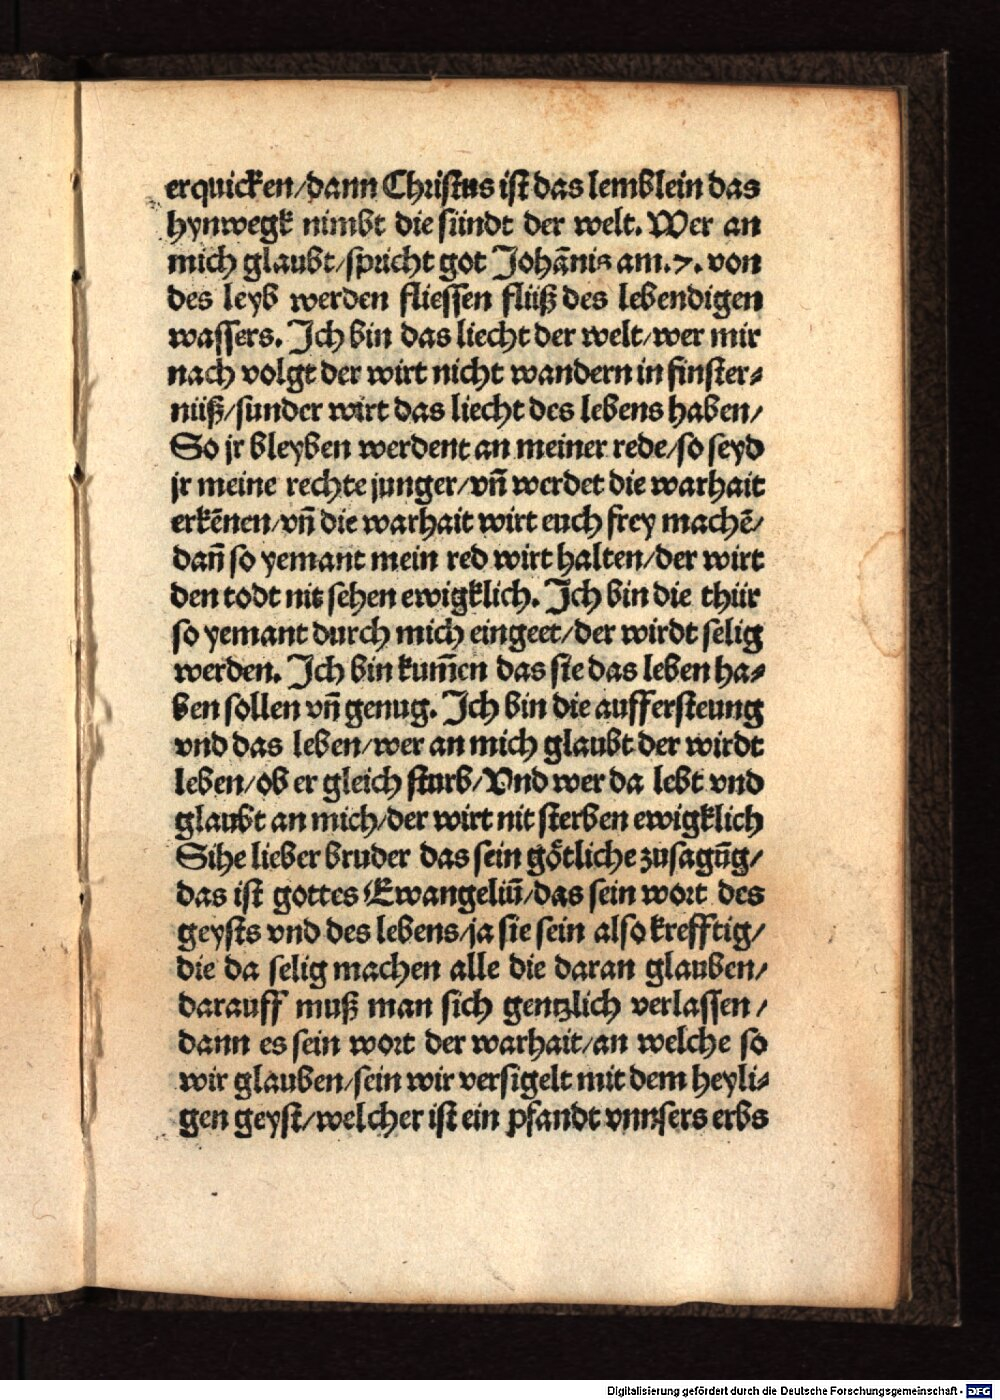 erquicken/dann Christus ist das lemblein das
hynwegk nimbt die sündt der welt. Wer an
mich glaubt/spricht got Johānis am.7. von
des leyb werden fliessen flüß des lebendigen
wassers. Ich bin das liecht der welt/wer mir
nach volgt der wirt nicht wandern in finster⸗
nüß/sunder wirt das liecht des lebens haben/
So jr bleyben werdent an meiner rede/so seyd
jr meine rechte junger/vn̄ werdet die warhait
erkēnen/vn̄ die warhait wirt euch frey machē/
dan̄ so yemant mein red wirt halten/der wirt
den todt nit sehen ewigklich. Ich bin die thür
so yemant durch mich eingeet/der wirdt selig
werden. Ich bin kum̄en das sie das leben ha⸗
ben sollen vn̄ genug. Ich bin die auffersteung
vnd das leben/wer an mich glaubt der wirdt
leben/ob er gleich sturb/Vnd wer da lebt vnd
glaubt an mich/der wirt nit sterben ewigklich
Sihe lieber bruder das sein götliche zusagūg/
das ist gottes Ewangeliū/das sein wort des
geysts vnd des lebens/ja sie sein also krefftig/
die da selig machen alle die daran glauben/
darauff muß man sich gentzlich verlassen/
dann es sein wort der warhait/an welche so
wir glauben/sein wir versigelt mit dem heyli⸗
gen geyst/welcher ist ein pfandt vnnsers erbs
Digitalisierung gefördert durch die Deutsche Forschungsgemeinschaft - DFG